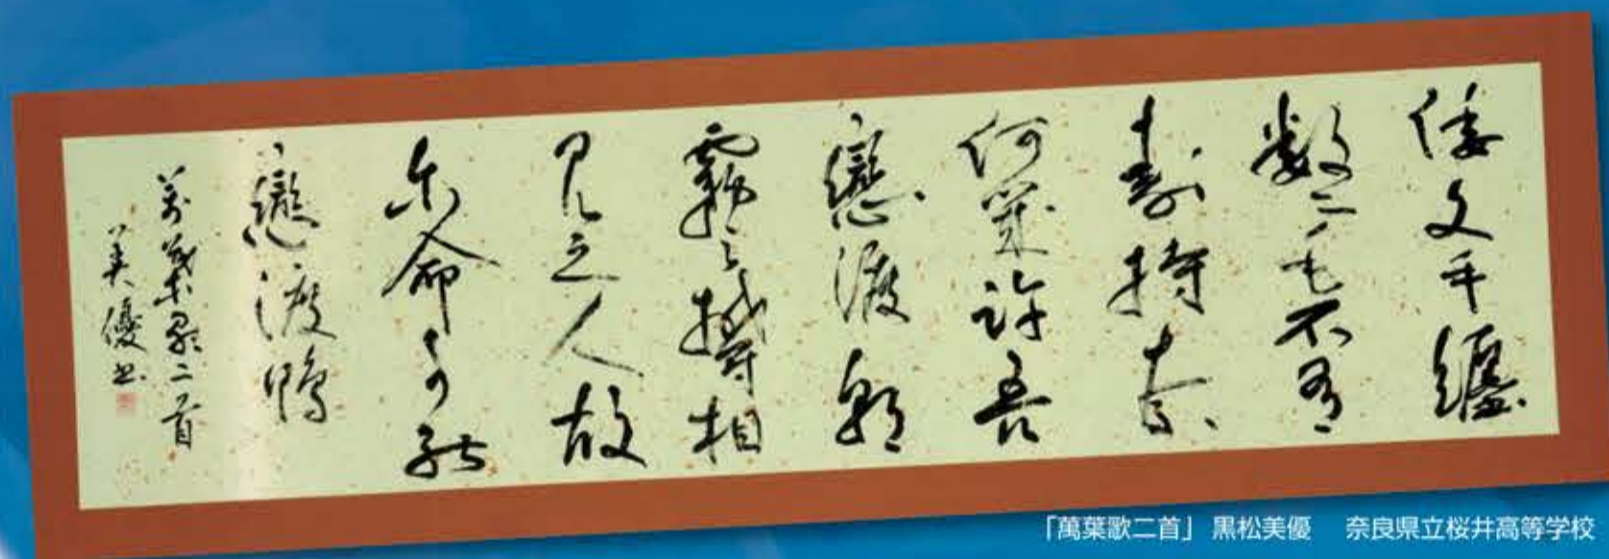 倭文手纏
数二毛不有
壽持奈
何幾許吾
戀渡朝
霧之欝相
見之人故
尓命可死
戀渡鴨
萬葉歌二首
美優書
「萬葉歌二首」 黒松美優　奈良県立桜井高等学校